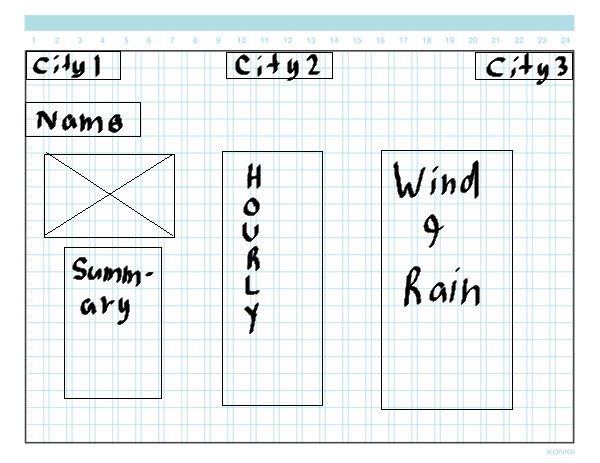 1 2 3 4 5 6 7 8 9 10 11 12 13 14 15 16 17 18 19 20 21 22 23 24
City 1 City 2 City 3
Name
Summ-
ary
H
O
U
R
L
Y
Wind
&
Rain
KONIGI